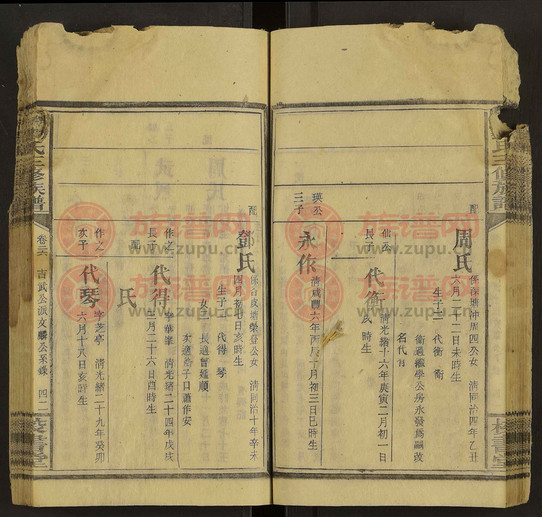 周氏
配
係深塘沖周四公女 清同治四年乙丑
六月二十二日未時生
生子二 代衡 衛
衛過繼學公房永發為嗣改
名代
仙公
長子
代衡
清光緒十六年庚寅二月初一日
辰時生
瑛公
三子
永作
清咸豐六年丙辰十月初三日巳時生
配
鄧氏
清同治十年辛未
四月初十日亥時生
生子二 代得 琴
女二
長適曾延順
次適 口蕭作安
作之
長子
代得
字華峯 清光緒二十四年戊戌
三月二十六日酉時生
配
氏
作之
次子
代琴
字芝亭 清光緒二十九年癸卯
六月十八日亥時生
氏三修族譜
卷二六 吉武公派文麟公系錄 四二
族谱网
www.zupu.cn